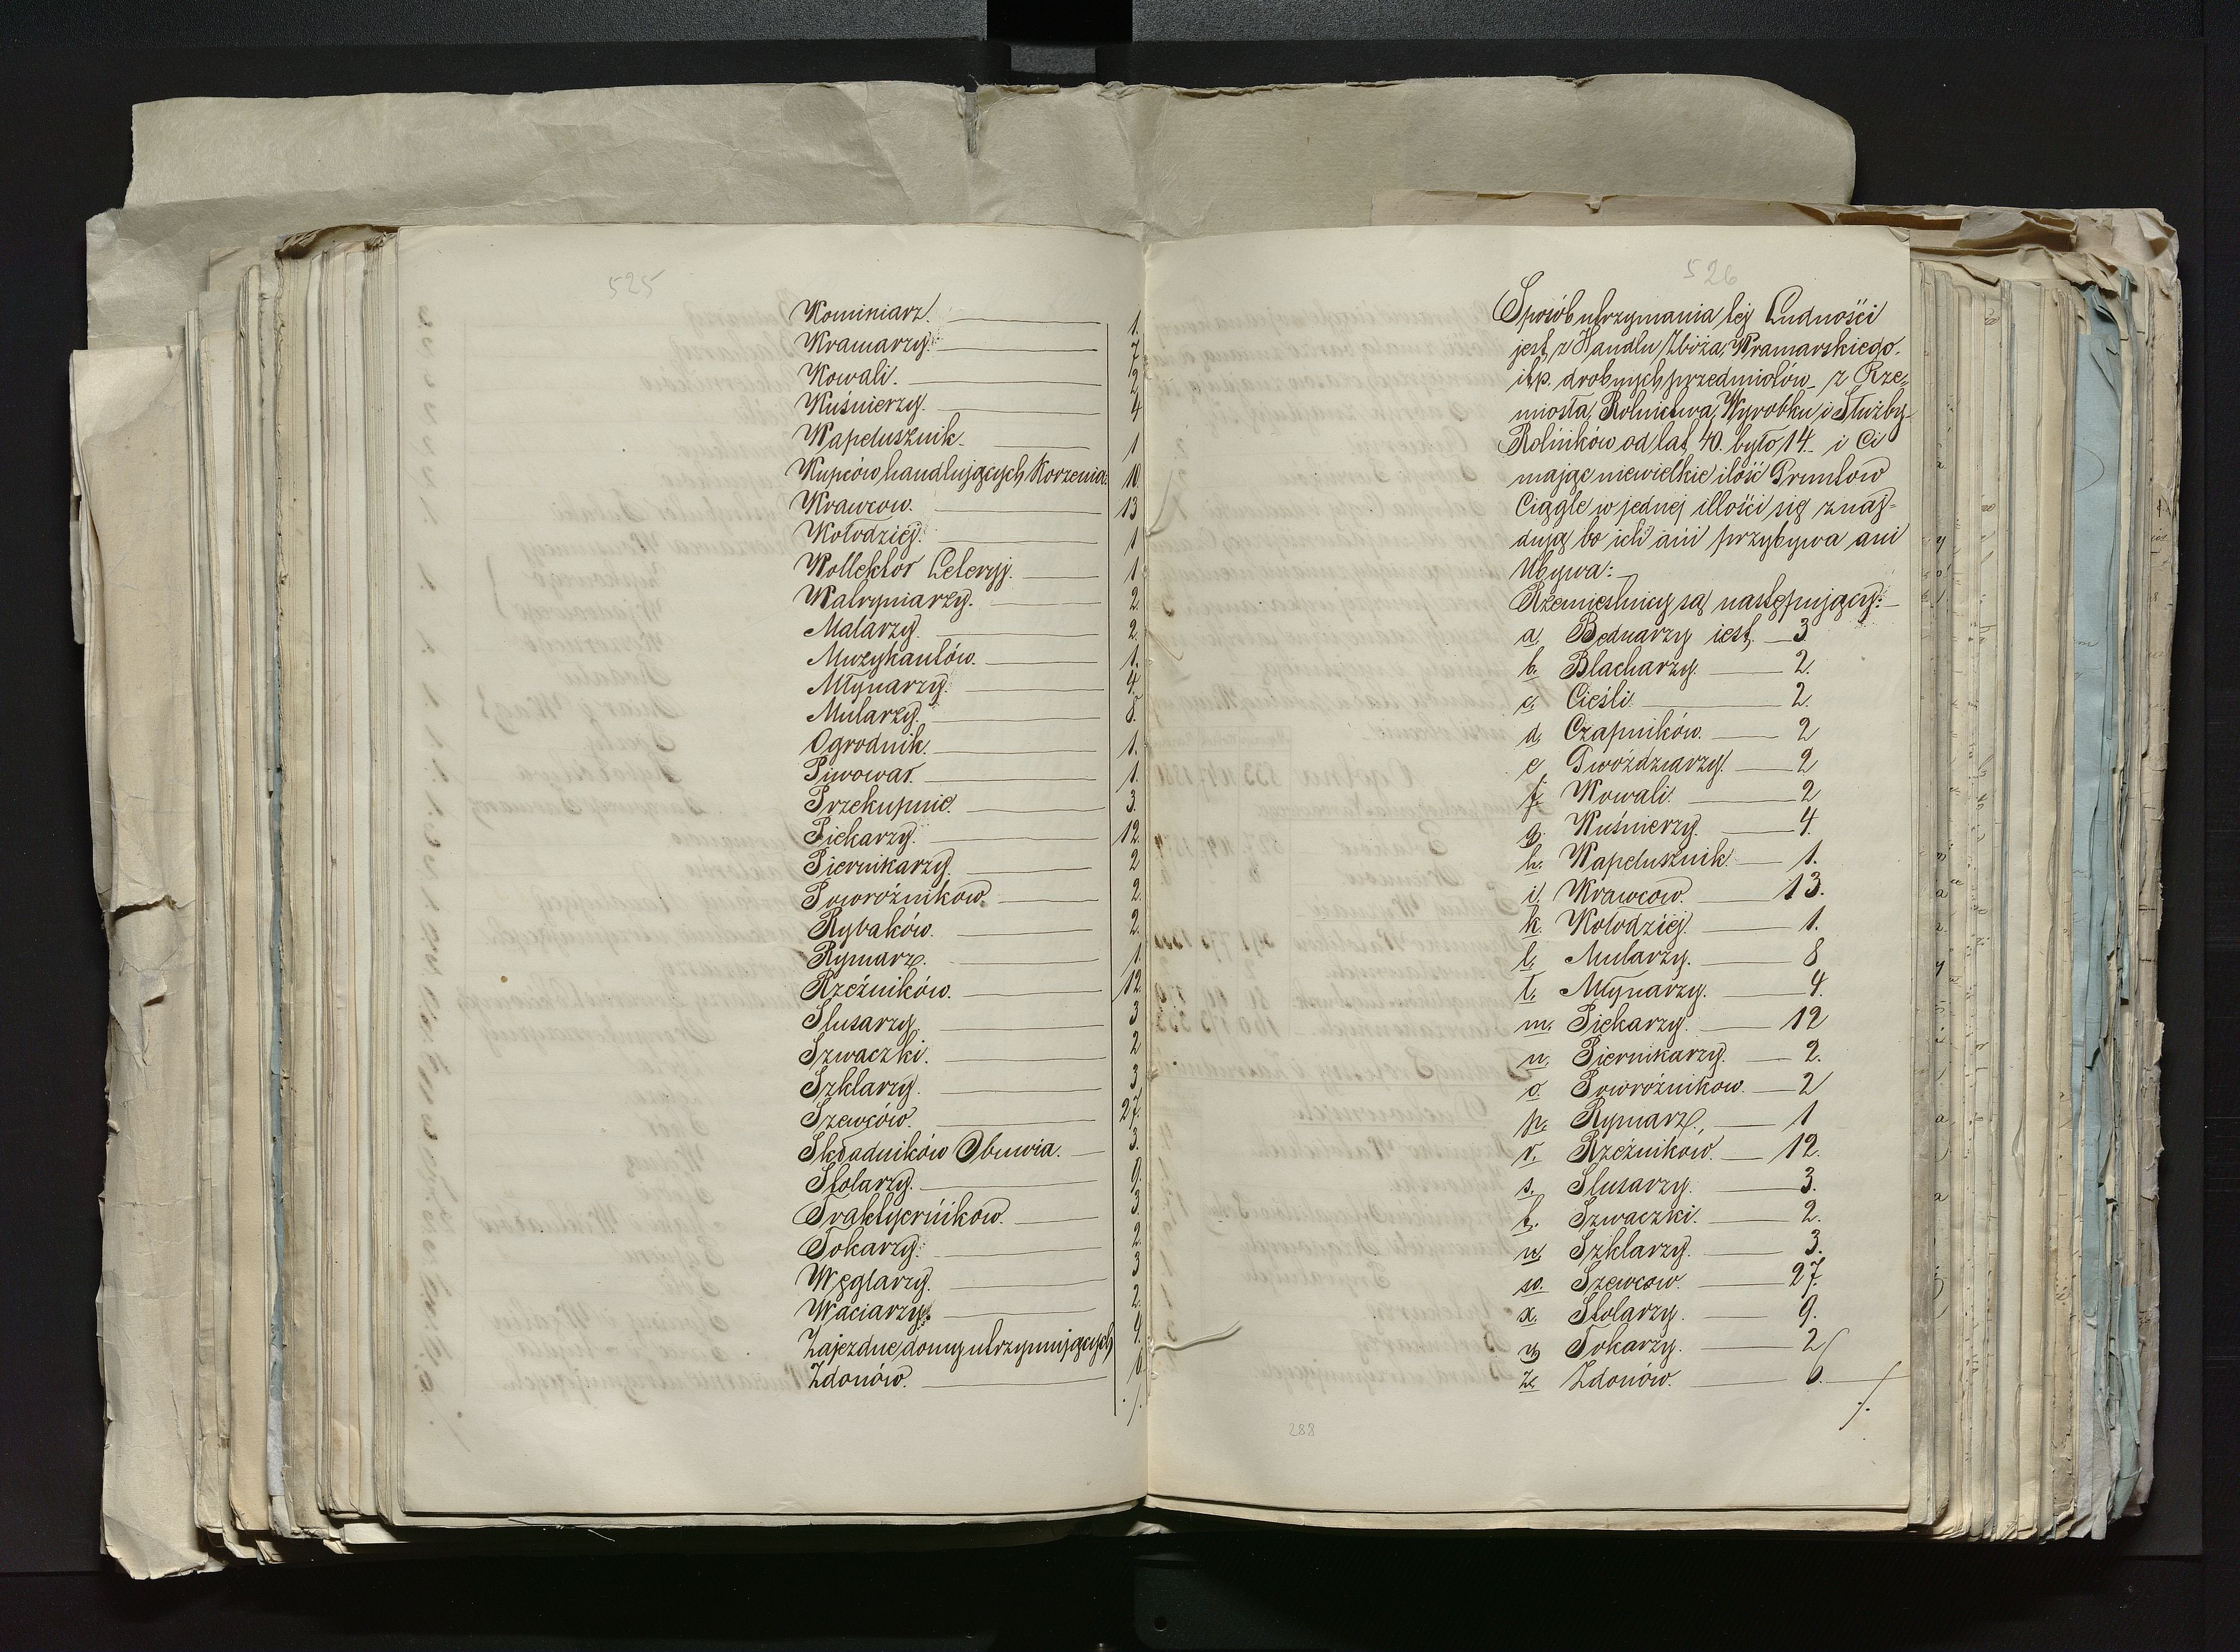 525
Kominiarz. 1.
Kramarzy. 7.
Kowali. 2
Kuśnierzy. 4
Kapelusznik 1
Kupców handlujących Korzenia. 10
Krawcow. 13
Kołodziéj. 1
Kollektor Leteryj. 1
Katryniarzy. 2
Malarzy. 2.
Muzykantów. 1.
Młynarzy. 4.
Mularzy. 8.
Ogrodnik. 1.
Piwowar. 1.
Przekupnie. 3.
Piekarzy. 12.
Piernikarzy. 2
Powroźnikow. 2.
Rybaków. 2.
Rymarz. 1.
Rzeźników. 12.
Slusarzy. 3
Szwaczki. 2
Szklarzy. 3
Szewców. 27.
Składników Obuwia. 3.
Stolarzy. 9.
Traktyerników. 3.
Tokarzy. 2.
Węglarzy. 3
Waciarzy. 2.
Zajezdne domy utrzymujących 4.
Zdonów. 6
./.
526
Sposób utrzymania tej Ludności
jest z Handlu Zboża, Kramarskiego.
itp. drobnych przedmiotów z Rze=
miosła, Rolnictwa, Wyrobku i Służby
Rolników od lat 40. było 14 i Ci
mając niewielkie ilość Gruntow
Ciągle w jednej illości się znaj=
dują bo ich ani przybywa ani
Ubywa:
Rzemieslnicy są następujący:
a. Bednarzy iest. 3
b. Blacharzy. 2.
c. Cieśli. 2.
d. Czapników. 2
e Gwóździarzy. 2
f. Kowali. 2
g. Kuśnierzy. 4.
h. Kapelusznik 1.
i. Krawcow. 13.
k. Kołodziej 1.
l. Mularzy. 8
ł. Młynarzy. 4.
m. Piekarzy. 12
n. Piernikarzy. 2.
o. Powroźnikow. 2
p. Rymarz. 1
r. Rzeźnikow. 12.
s. Slusarzy. 3.
t. Szwaczki. 2.
u. Szklarzy. 3.
w. Szewcow. 27.
x. Stolarzy. 9.
y Tokarzy. 2
z. Zdonów. 6.
./.
288